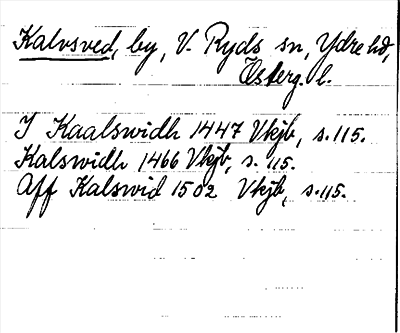 Kalvsved, by, V. Ryds sn, Ydre hd,
Österg. l.
I Kaalswidh 1447 Vkjb, s. 115.
Kalswidh 1466 Vkjb, s. 115.
Aff Kalswid 1502 Vkjb, s. 115.